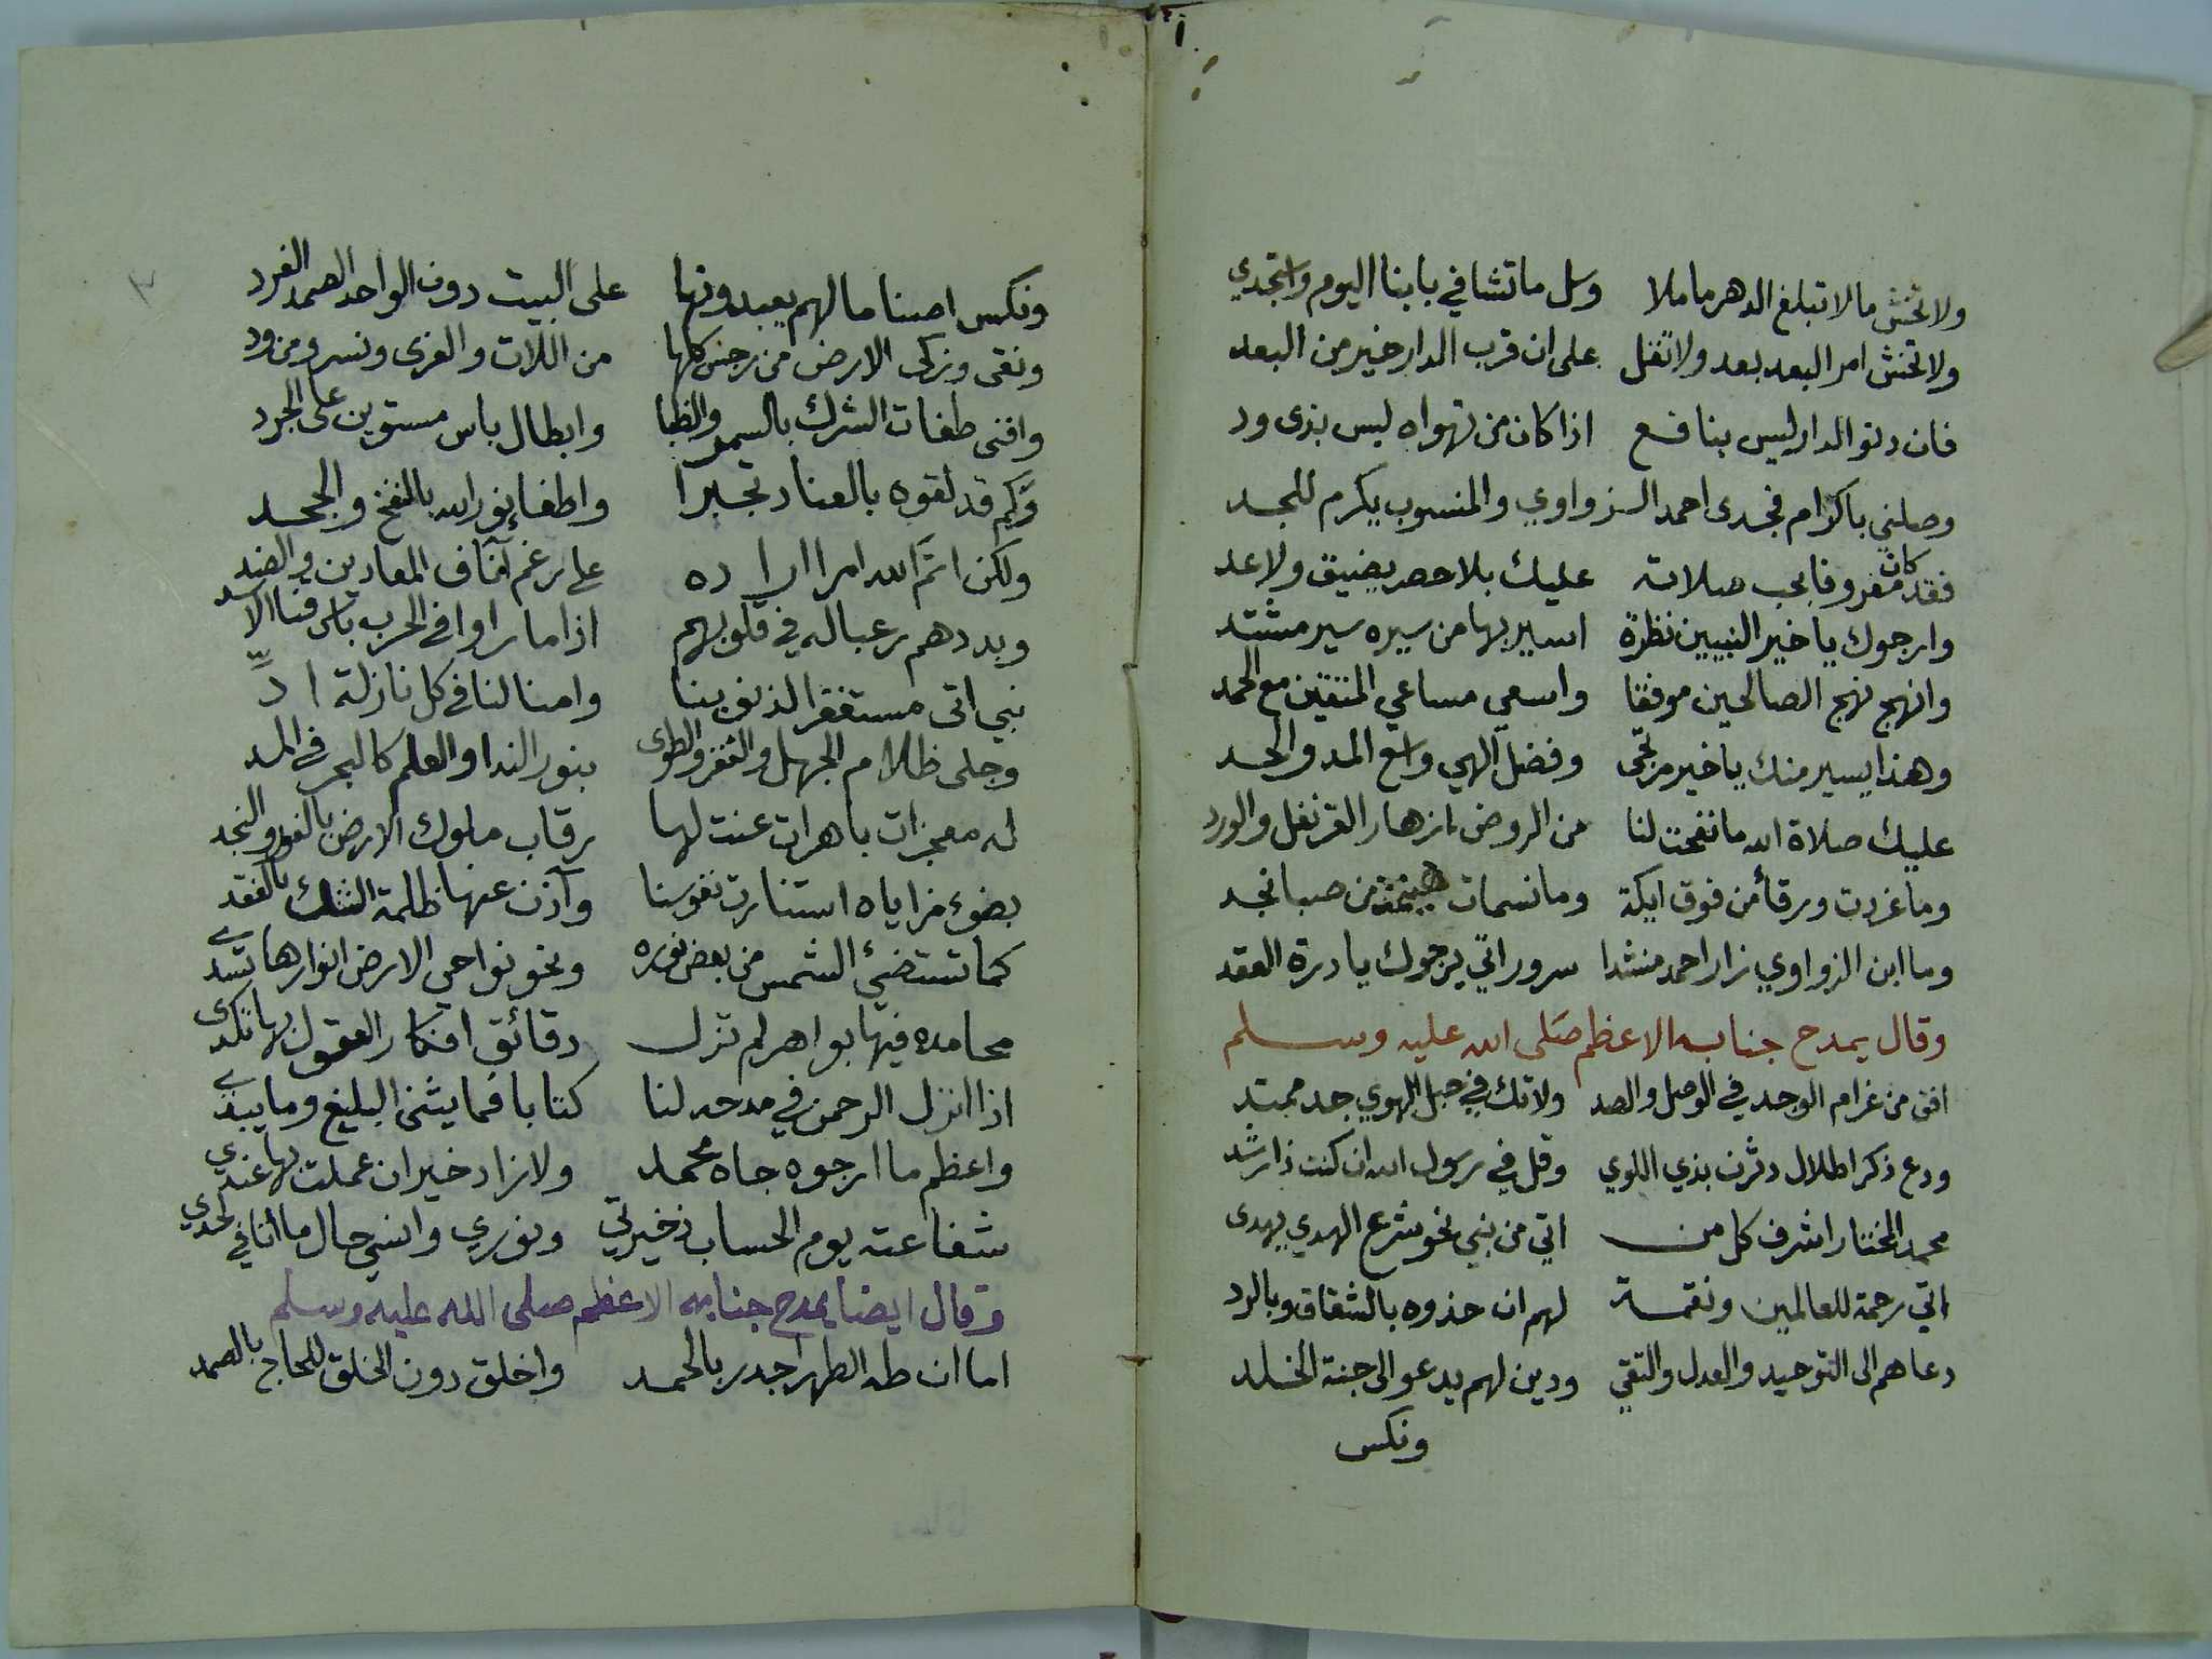 ولا تخش مالا تبلغ الدهر ماملا وسل ما تشا في بابنا اليوم واستجدي
ولا تخش امر البعد بعد ولا تقل على ان قرب الدار خير من البعد
فان دنو الدار ليس بنافع اذا كان من تهواه ليس بذى ود
وصلني باكرام فجدى احمد الزواوي والمنسوب يكرم للجد
فقد كان مغروفا بحب صلاته عليك بلا حصر يضيق ولا عد
وارجوك يا خير النبيين نظرة اسير بها من سيره سير مشتد
وانهج نهج الصالحين موفقا واسعي مساعي المتقين مع الحمد
وهذا يسير منك يا خير مرتجى وفضل الهي واسع المد والحد
عليك صلاة الله ما نفحت لنا من الروض ازهار القرنفل والورد
وما غردت ورقأ من فوق ايكة وما نسمات من صبا نجد
وما ابن الزواوي زار احمد منشدا سرور اتي يرجوك يا درة العقد
وقال يمدح جنابه الاعظم صلى الله عليه وسلم
افق من غرام الوجد في الوصل والصد ولا تك في حبل الهوي جد ممتد
ودع ذكر اطلال دثرن بذي اللوي وقل في رسول الله ان كنت ذا رشد
محمد المختار اشرف كل من اتي من نبي نحو شرع الهدي يهدى
اتي رحمة للعالمين ونقمة لهم ان حذوه بالشقاق وبالرد
دعاهم الى التوحيد والعدل والتقي ودين لهم يدعو الى جنة الخلد
ونكس
ونكس اصناما لهم يعبدونها على البيت دون الواحد الصمد الفرد
ونقى وزكى الارض من رجس كلها من اللات والعزى ونسر ومن ود
وافنى طغات الشرك بالسمر والظبا وابطال باس مستوين على الجرد
وكم قد لقوه بالعناد تجبرا واطفا نور الله بالنفخ والجحد
ولكن اتم الله امرا اراده على رغم آناف المعادين والضد
وبددهم رعبا له في قلوبهم اذا ما راوا في الحرب باس قنا الاسد
نبي اتى مستغفرا لذنوبنا وامنا لنا في كل نازلة ادّ
وجلى ظلام الجهل والفقر والطوى بنور الندا والعلم كالبحر في المد
له معجزات باهرات عنت لها رقاب ملوك الارض بالغور والنجد
بضوء مزاياه استنارت نفوسنا وآذن عنها ظلمة الشك بالفقد
كما تستضئ الشمس من بعض نوره ونحو نواحي الارض انوارها تسدي
محامده فيها بواهر لم تزل دقائق افكار العقول بها تكدى
اذا انزل الرحمن في مدحه لنا كتابا فما يثنى البليغ وما يبدي
واعظم ما ارجوه جاه محمد ولا زاد خير ان عملت بها عندي
شفاعته يوم الحساب ذخيرتي ونوري وانسي حال ما انا في لحدي
وقال ايضا يمدح جنابه الاعظم صلى الله عليه وسلم
اما ان طه الطهر اجدر بالحمد واخلق دون الخلق للحاج بالصمد